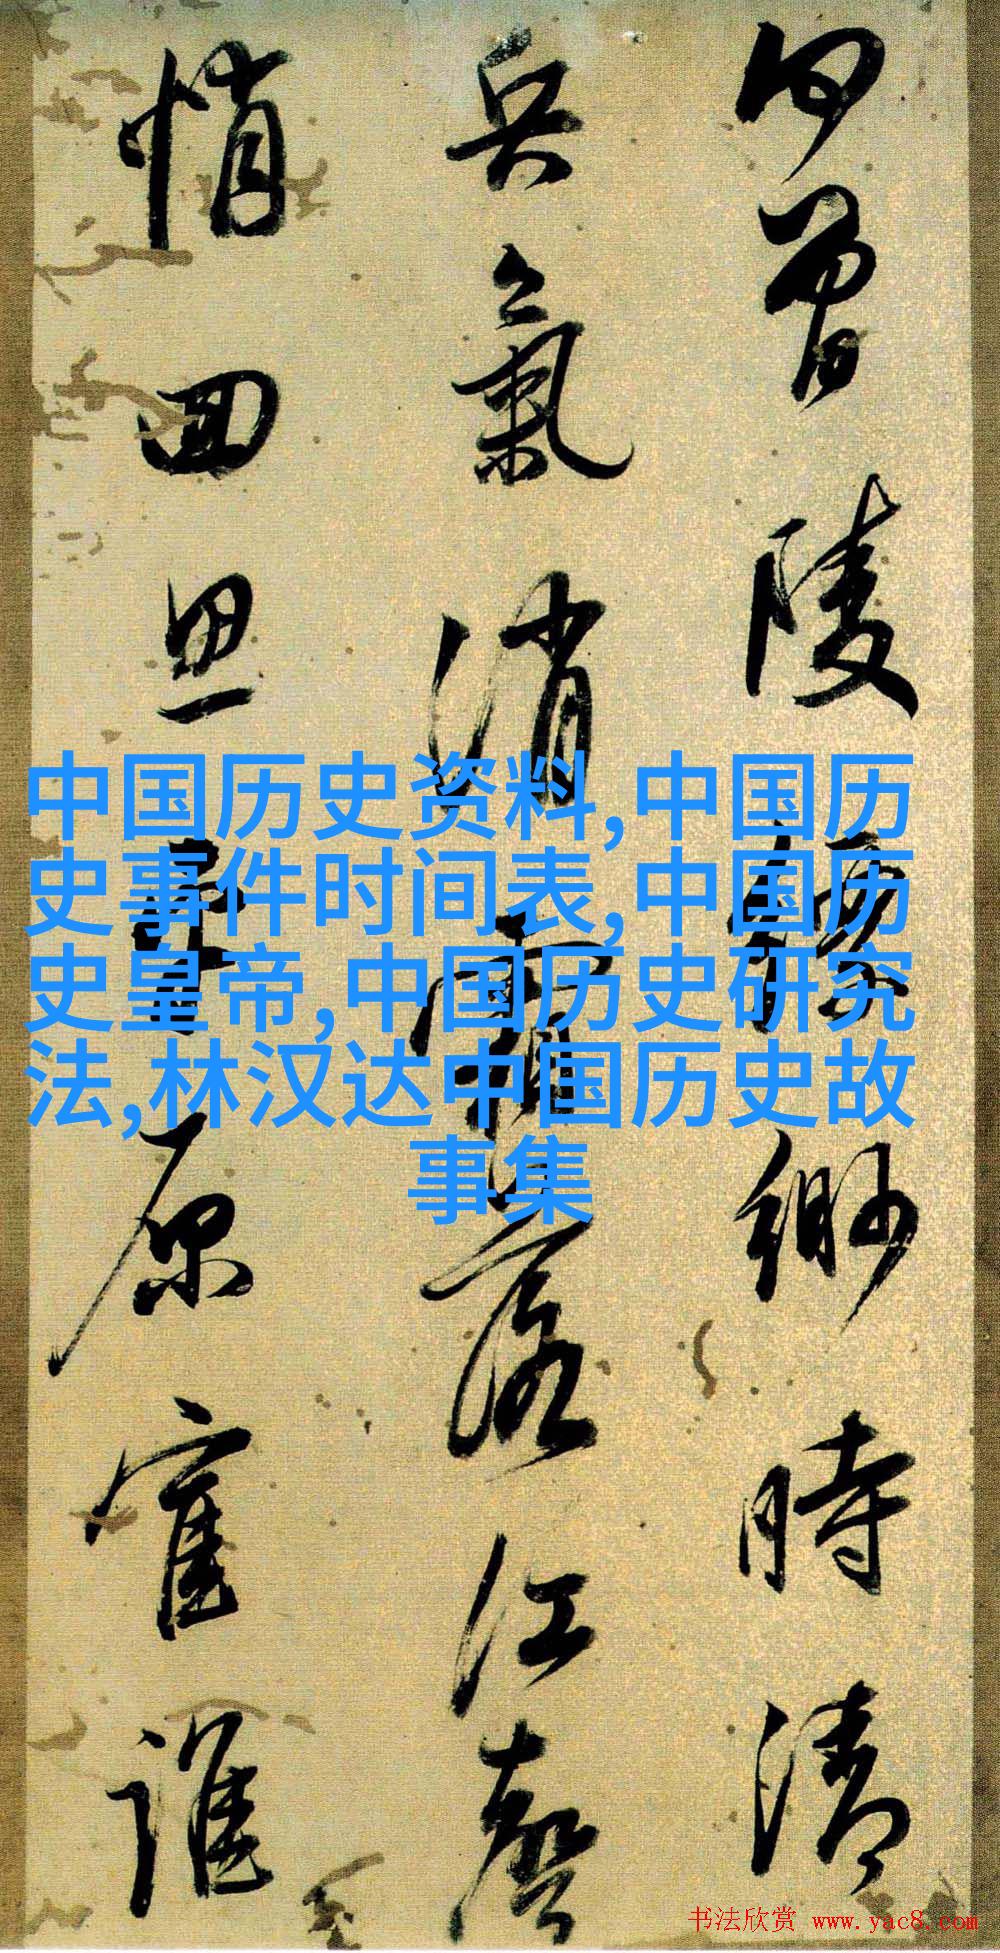 曾陵緲時清
兵氣消霜落江聲
悄回思原誰
中国历史资料,中国历
史事件时间表,中国历
史皇帝,中国历史研究
法,林汉达中国历史故
事集
书法欣赏 www.yac8.com